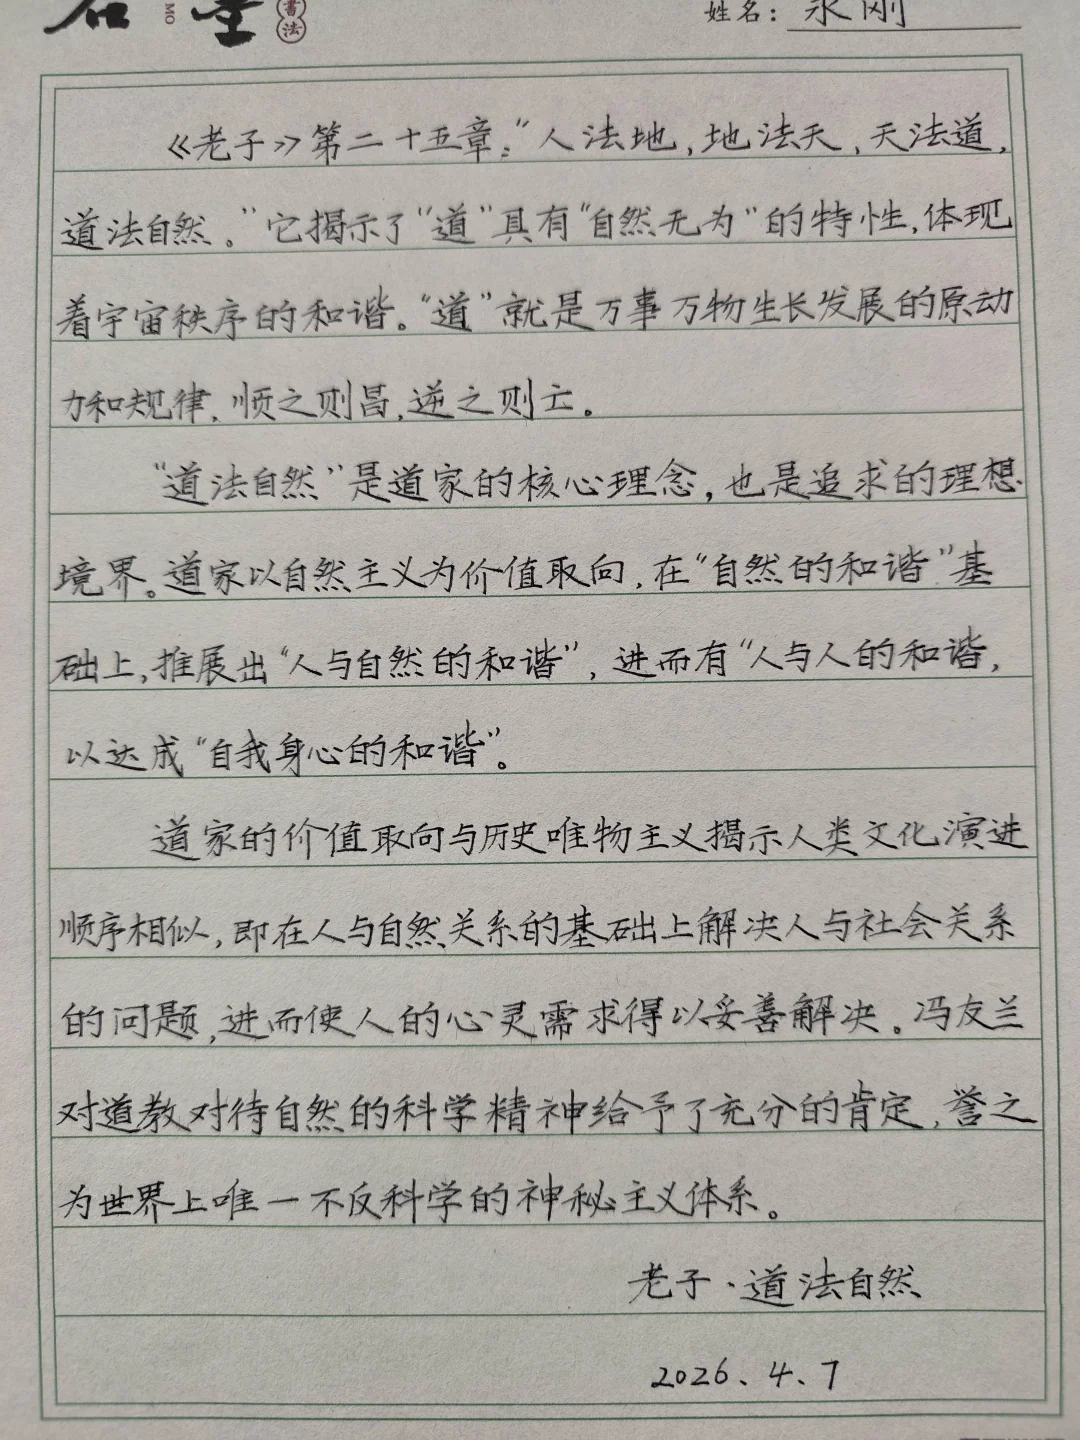 MO
書法
姓名：永刚
《老子》第二十五章："人法地，地法天，天法道，
道法自然。"它揭示了"道"具有"自然无为"的特性，体现
着宇宙秩序的和谐。"道"就是万事万物生长发展的原动
力和规律，顺之则昌，逆之则亡。
"道法自然"是道家的核心理念，也是追求的理想
境界。道家以自然主义为价值取向，在"自然的和谐"基
础上，推展出"人与自然的和谐"，进而有"人与人的和谐，
以达成"自我身心的和谐"。
道家的价值取向与历史唯物主义揭示人类文化演进
顺序相似，即在人与自然关系的基础上解决人与社会关系
的问题，进而使人的心灵需求得以妥善解决。冯友兰
对道教对待自然的科学精神给予了充分的肯定，誉之
为世界上唯一不反科学的神秘主义体系。
老子·道法自然
2026、4、7